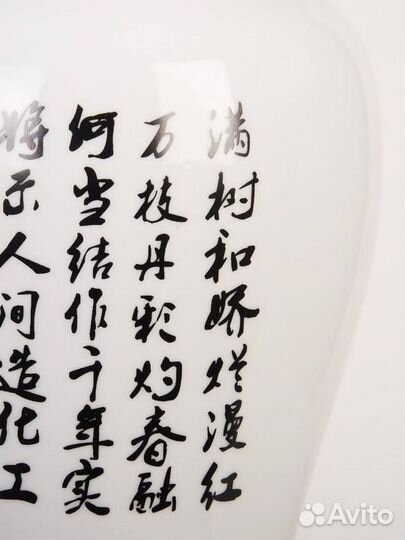 满树和娇烂漫红
万枝丹彩灼春融
何当结作千年实
将示人间造化工
Avito